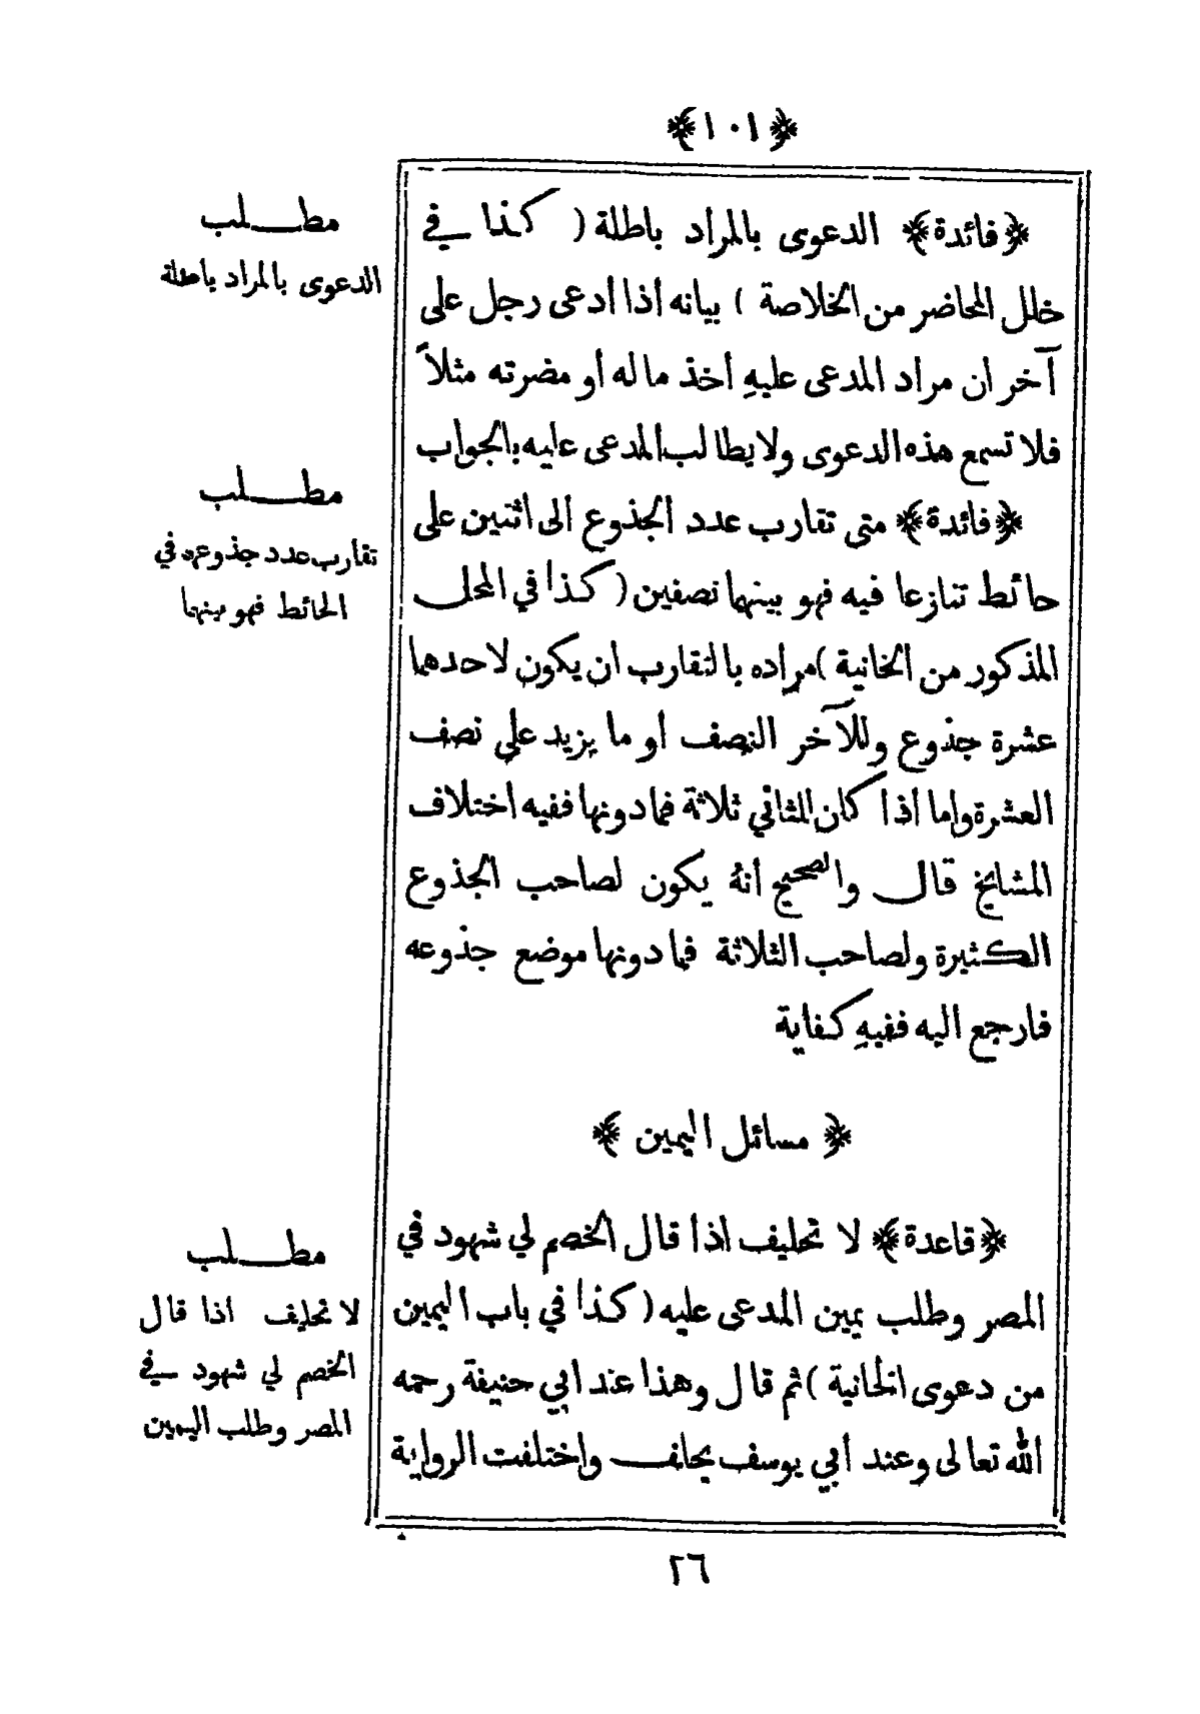 ﴿١٠١﴾
﴿فائدة﴾ الدعوى بالمراد باطلة ( كذا في
خلل المحاضر من الخلاصة ) بيانه أذا أدعى رجل على
آخر ان مراد المدعى عليهِ أخذ ماله أو مضرته مثلاً
فلا تسمع هذه الدعوى ولا يطالب المدعى عليه بالجواب
﴿فائدة﴾ متى تقارب عدد الجذوع الى اثنين على
حائط تنازعا فيه فهو بينهما نصفين ( كذا في المحل
المذكور من الخانية ) مراده بالتقارب ان يكون لاحدهما
عشرة جذوع وللآخر النصف أو ما يزيد على نصف
العشرة واما أذا كان الثاني ثلاثة فما دونها ففيه اختلاف
المشايخ قال والصحيح أنهُ يكون لصاحب الجذوع
الكثيرة ولصاحب الثلاثة فما دونها موضع جذوعه
فارجع اليه ففيهِ كفاية
﴿ مسائل اليمين ﴾
﴿قاعدة﴾ لا تحليف اذا قال الخصم لي شهود في
المصر وطلب يمين المدعى عليه ( كذا في باب اليمين
من دعوى الخانية ) ثم قال وهذا عند ابي حنيفة رحمه
الله تعالى وعند أبي يوسف يحلف واختلفت الرواية
مطلب
الدعوى بالمراد باطلة
مطلب
تقارب عدد جذوعه في
الحائط فهو بينهما
مطلب
لا تحليف اذا قال
الخصم لي شهود في
المصر وطلب اليمين
٢٦